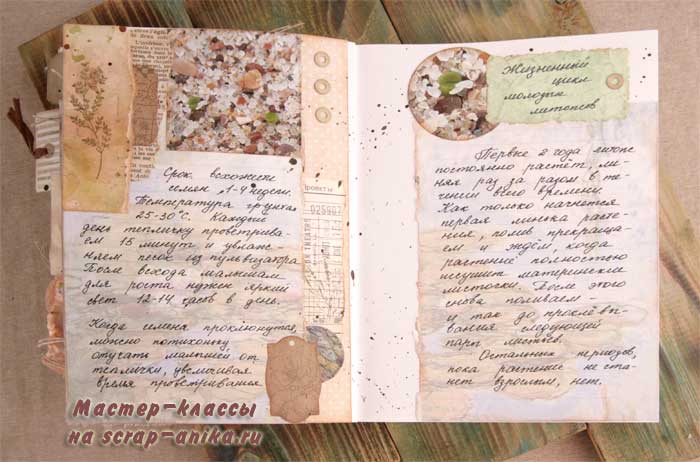 Срок всхожести
семян 1-4 недели.
Температура грунта
25-30°С. Каждый
день тепличку проветрива-
ем 15 минут и увлаж-
няем песок из пульвизатора.
После всхода малышам
для роста нужен яркий
свет 12-14 часов в день.
Когда семена проклюнутся,
можно потихоньку
отучать малышей от
теплички, увеличивая
время проветривания.
025907
Жизненный
цикл
молодых
литопсов
Первые 2 года литопс
постоянно растёт, ме-
няя раз за разом в те-
чении всего времени.
Как только начнется
первая линька расте-
ния, полив прекраща-
ем и ждём, когда
растений полностью
иссушит материнские
листочки. После этого
снова поливаем —
и так до проклёвы-
вания следующей
пары листьев.
Остальных периодов,
пока растение не ста-
нет взрослым, нет.
Мастер-классы
на scrap-anika.ru